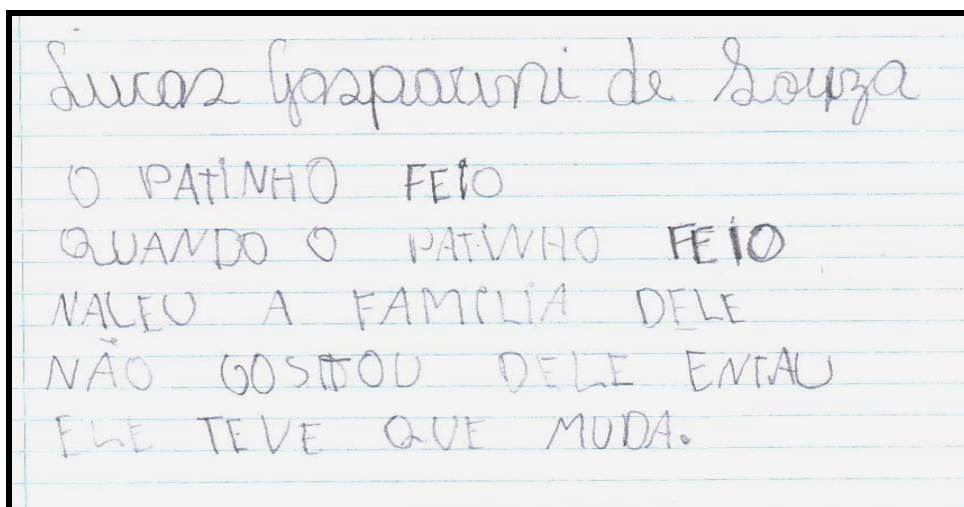 Lucas Gasparini de Souza
O PATINHO FEIO
QUANDO O PATINHO FEIO
NALEU A FAMILIA DELE
NÃO GOSTOU DELE ENTAU
ELE TEVE QUE MUDA.